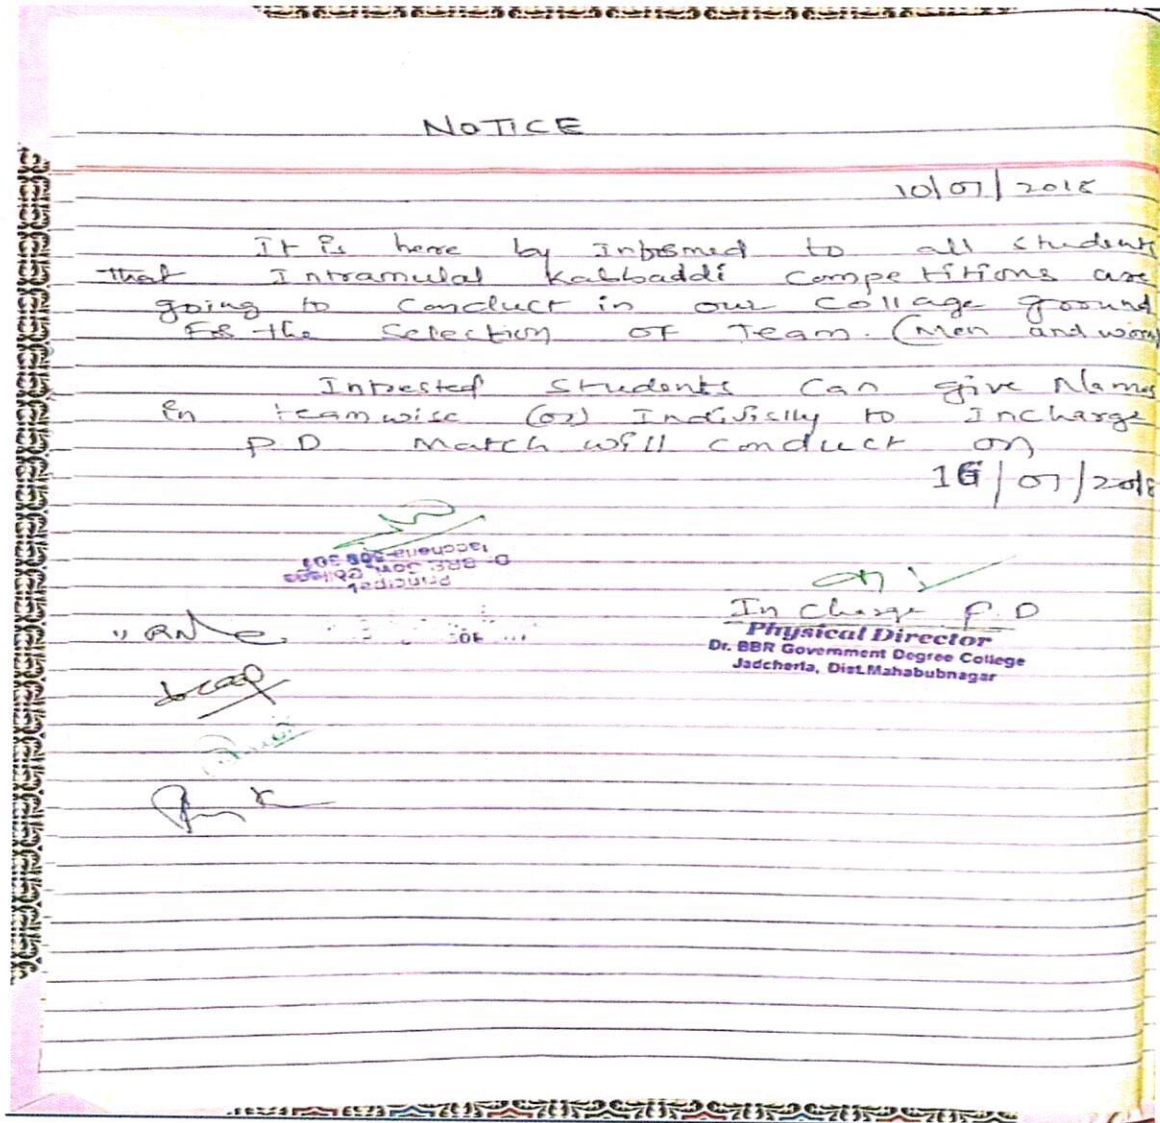 NOTICE
10/07/2018
It is here by Informed to all students
that Intramulal Kabbaddi Competitions are
going to conduct in our Collage ground
For the Selection of Team. (Men and wom
Intrested Students Can give Names
in teamwise (or) Indivislly to Incharge
P.D Match will conduct on
16/07/2018
Principal
Dr. BRR Govt. College
Jadcherla-509 301
In charge P.D
Physical Director
Dr. BBR Government Degree College
Jadcherla, Dist.Mahabubnagar